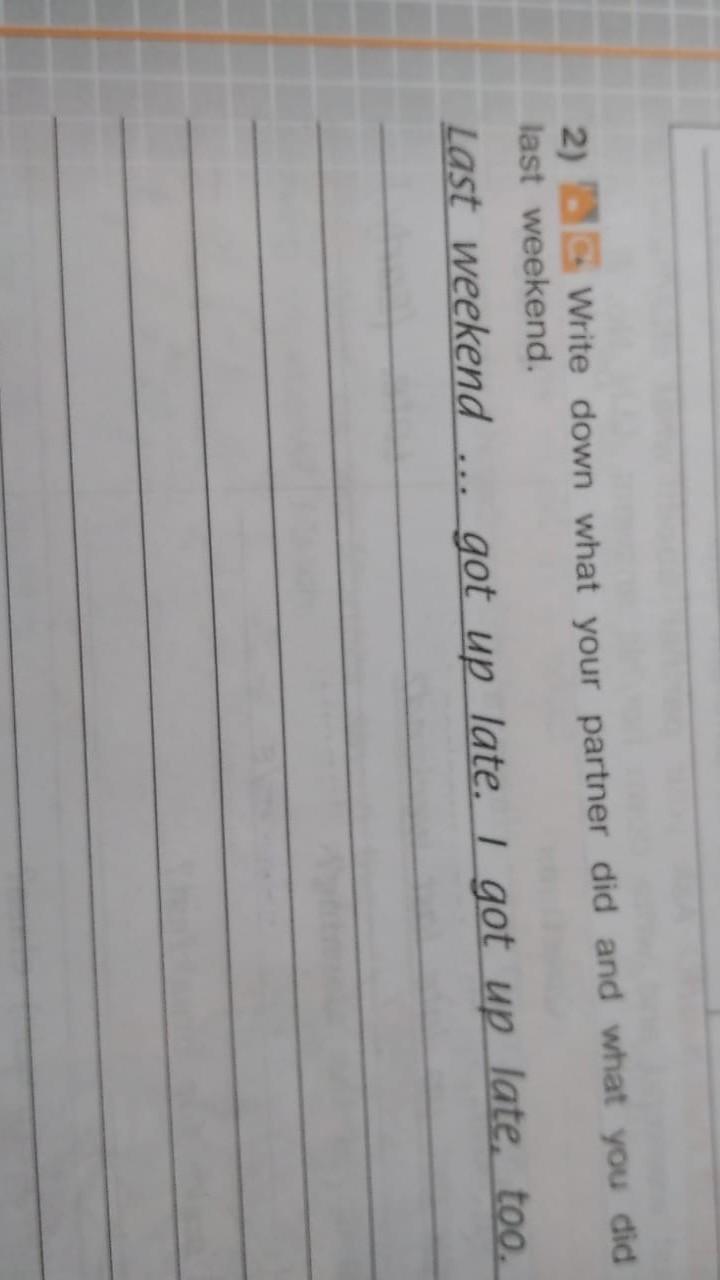 2) Write down what your partner did and what you did
last weekend.
Last weekend ... got up late. I got up late, too.